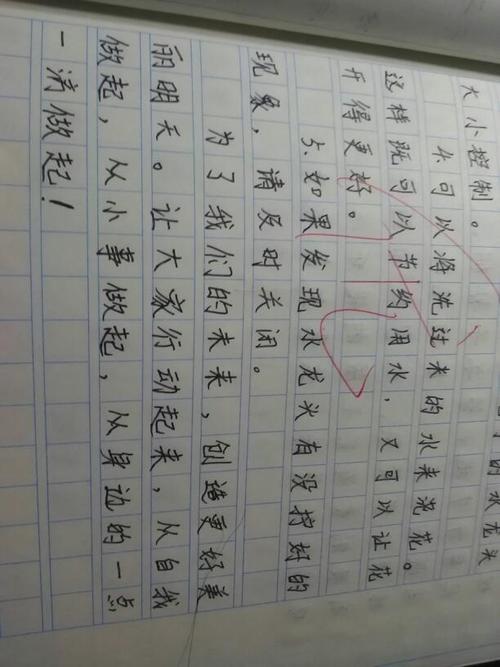 的水龙头
大小控制。
4.可以将洗过米的水来浇花。
这样既可以节约用水，又可以让花
开得更好。
5.如果发现水龙头有没拧好的
现象，请及时关闭。
为了我们的未来，创造更好美
丽明天。让大家行动起来，从自我
做起，从小事做起，从身边的一点
一滴做起！